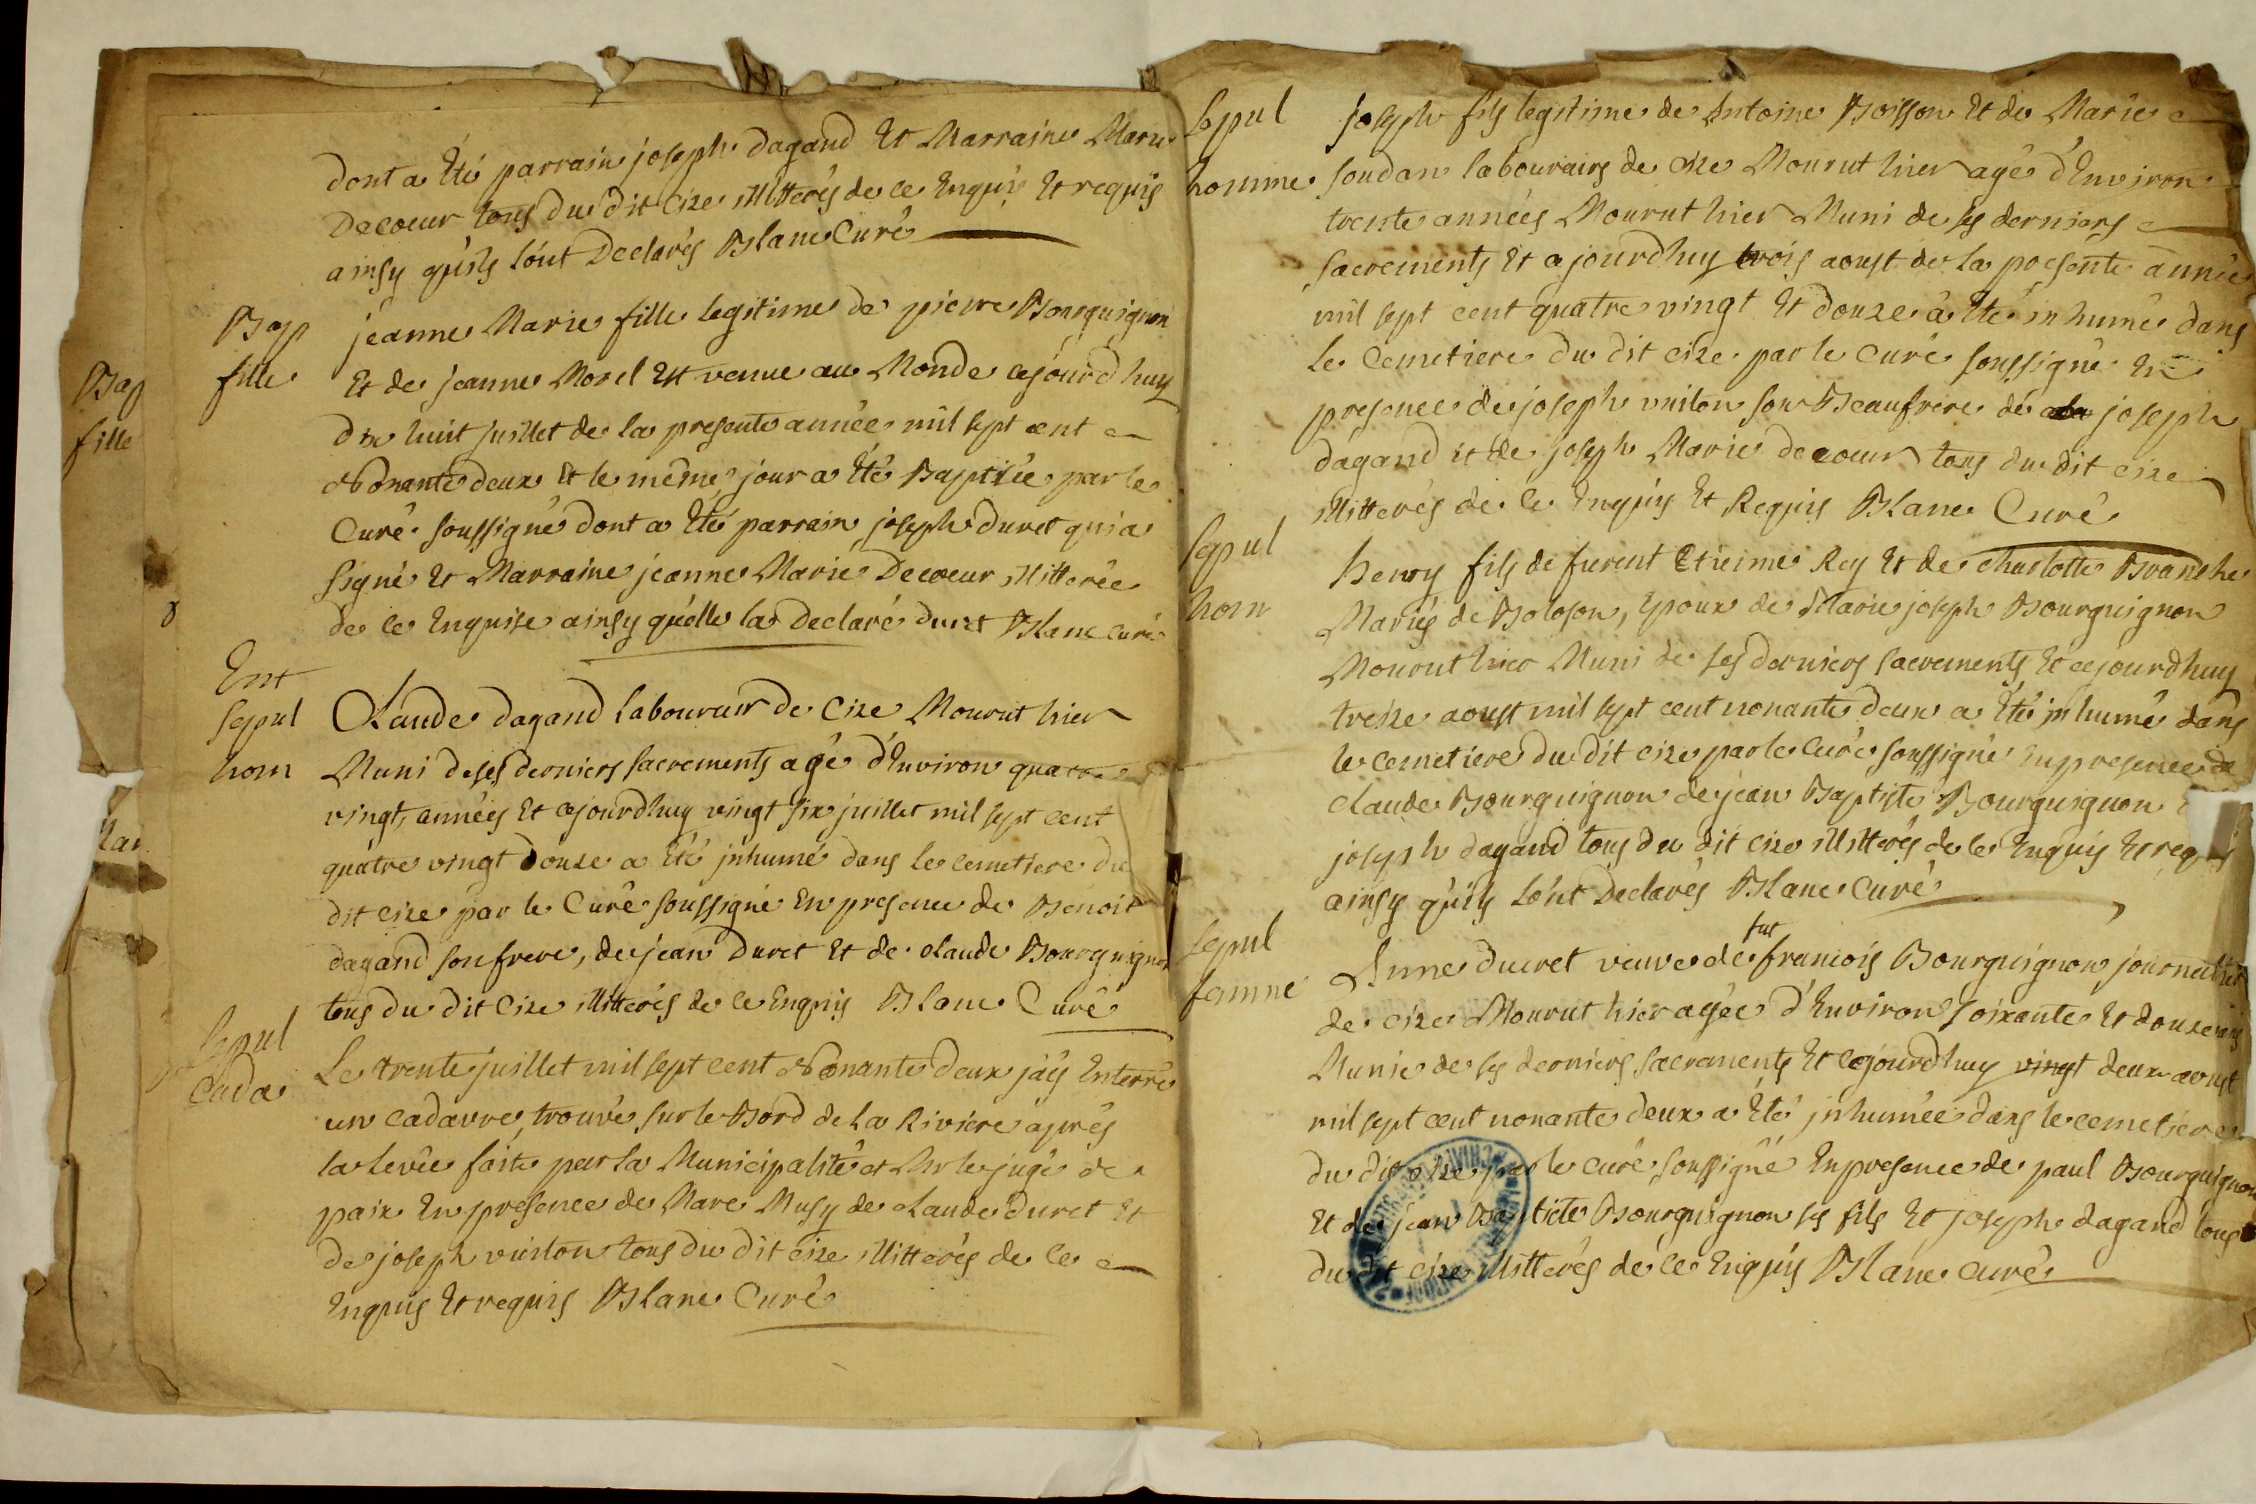 Bap
fille
dont a Eté parrain joseph dagand Et Marraine Marie
Decoeur tous du dit Cize illitterés de ce Enquis Et requis
ainsy qu'ils l'ont Declarés Blanc Curé
Bap
fille
jeanne Marie fille legitime de pierre Bourguignon
Et de jeanne Morel Est venue au Monde cejourd huy
dix huit juillet de la presente année mil sept cent
Nonante deux Et le même jour a Eté Baptisée par le
Curé soussigné dont a Eté parrain joseph duret qui a
Signé Et Marraine jeanne Marie Decoeur illitterée
de ce Enquise ainsy quelle la Declaré duret Blanc curé
Ent
sepul
hom
Claude dagand laboureur de Cize Mourut hier
Muni deses derniers sacrements agé d'Environ quatre
vingt, années Et cejourdhuy vingt six juillet mil sept cent
quatre vingt douze a Eté jnhumé dans le cemetiere du
dit cize par le Curé soussigné En presence de Benoit
dagand son frere, de jean Duret Et de claude Bourguignon
tous du dit Cize illitterés de ce Enquis Blanc Curé
Sepul
Cada
Le trente juillet mil sept cent Nonante deux jaÿ Enterré
un cadavre, trouvé sur le Bord de la Riviere aprés
la levée faite par la Municipalité et Mr le juge de
paix En presence de Marc Musy de claude duret Et
de joseph vuiton tous du dit cize illitterés de ce
Enquis Et requis Blanc Curé
Sepul
homme
joseph fils legitime de Antoine Boisson Et de Marie
soudan labourairs de cize Mourut hier agé d'Environ
trente années Mourut hier Muni de ses derniers
sacrements Et ajourdhuy trois aoust de la presente année
mil sept cent quatre vingt Et douze a Eté inhumé dans
le Cemetiere du dit cize par le Curé soussigné En
presence de joseph vuiton son Beaufrere de joseph
dagand et de joseph Marie decoeur tous du dit cize
illitterés de ce Enquis Et Requis Blanc Curé
Sepul
hom
henry fils de furent Etieime Rey Et de charlotte Branche
Mariés de Boloson, Epoux de Marie joseph Bourguignon
Mourut hier Muni de ses derniers sacrements, Et cejourdhuy
treize aoust mil sept cent nonante deux a Eté jnhumé dans
le cemetiere du dit cize par le Curé soussigné En presence de
claude Bourguignon de jean Baptiste Bourguignon
joseph dagand tous du dit cize illitterés de ce Enquis Et requis
ainsy qu'ils l'ont Declarés Blanc Curé
sepul
femme
fut
Anne ducret veuve de francois Bourguignon journallier
de cize Mourut hier agée d'Environ soixante Et douze ans
Munie de ses derniers sacrements Et cejourdhuy vingt deux aoust
mil sept cent nonante deux a Eté jnhumée dans le cemetiere
du dit cize par le curé soussigné En presence de paul Bourguignon
Et de jean Baptiste Bourguignon ses fils Et joseph dagand tous
du dit cize illitterés de ce Enquis Blanc curé